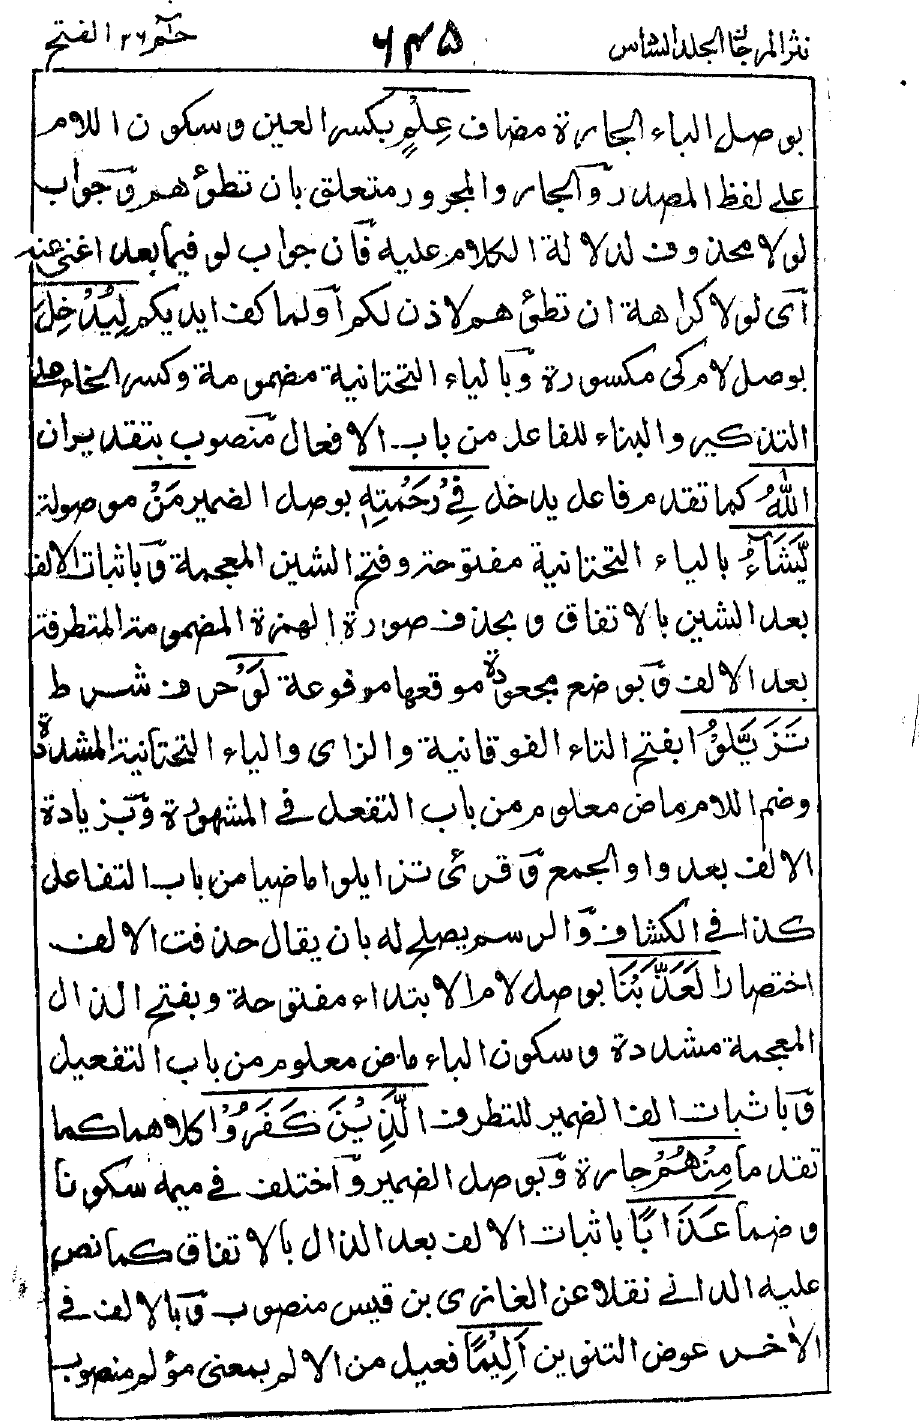 نثر المرجان الجلد السادس ٦٤٥ حٰمٓ ٢٦ الفتح
بوصل الباء الجارة مضاف عِلْمٍ بكسر العين وسكون اللام
على لفظ المصدر وٓالجار والمجرور متعلق بان تطئوهم وٓجواب
لولا محذوف لدلالة الكلام عليه فٓان جواب لو فيما بعد اغنى عنه
آى لولا كراهة ان تطئوهم لاذن لكم اٰولما كف ايديكم لِيُدْخِلَ
بوصل لام كى مكسورة وٓبالياء التحتانية مضمومة وكسر الخاء على
التذكير والبناء للفاعل من باب الافعال منصوب بتقدير ان
اللّٰهُ كما تقدم فاعل يدخل فِىْ رَحْمَتِهٖ بوصل الضمير مَنْ موصولة
يَّشَآءُ بالياء التحتانية مفتوحة وفتح الشين المعجمة وٓباثبات الالف
بعد الشين بالاتفاق وبحذف صورة الهمزة المضمومة المتطرفة
بعد الالف وٓبوضع مجعودة موقعها مرفوعة لَوْ حرف شرط
تَزَيَّلُوْا بفتح التاء الفوقانية والزاى والياء التحتانية المشددة
وضم اللام ماض معلوم من باب التفعل فى المشهورة وٓبزيادة
الالف بعد واو الجمع وٓقرئ تزايلوا ماضيا من باب التفاعل
كذا فى الكشاف وٓالرسم يصلح له بان يقال حذفت الالف
اختصارا لَعَذَّبْنَا بوصل لام الابتداء مفتوحة وبفتح الذال
المعجمة مشددة وسكون الباء ماض معلوم من باب التفعيل
وٓباثبات الف الضمير للتطرف الَّذِيْنَ كَفَرُوْا كلاهما كما
تقدما مِنْهُمْ جارة وٓبوصل الضمير وٓاختلف فى ميمه سكونا
وضما عَذَابًا باثبات الالف بعد الذال بالاتفاق كما نص
عليه الدانى نقلا عن الغازى بن قيس منصوب وٓبالالف فى
الأخر عوض التنوين اَلِيْمًا فعيل من الالم بمعنى مؤلم منصوب